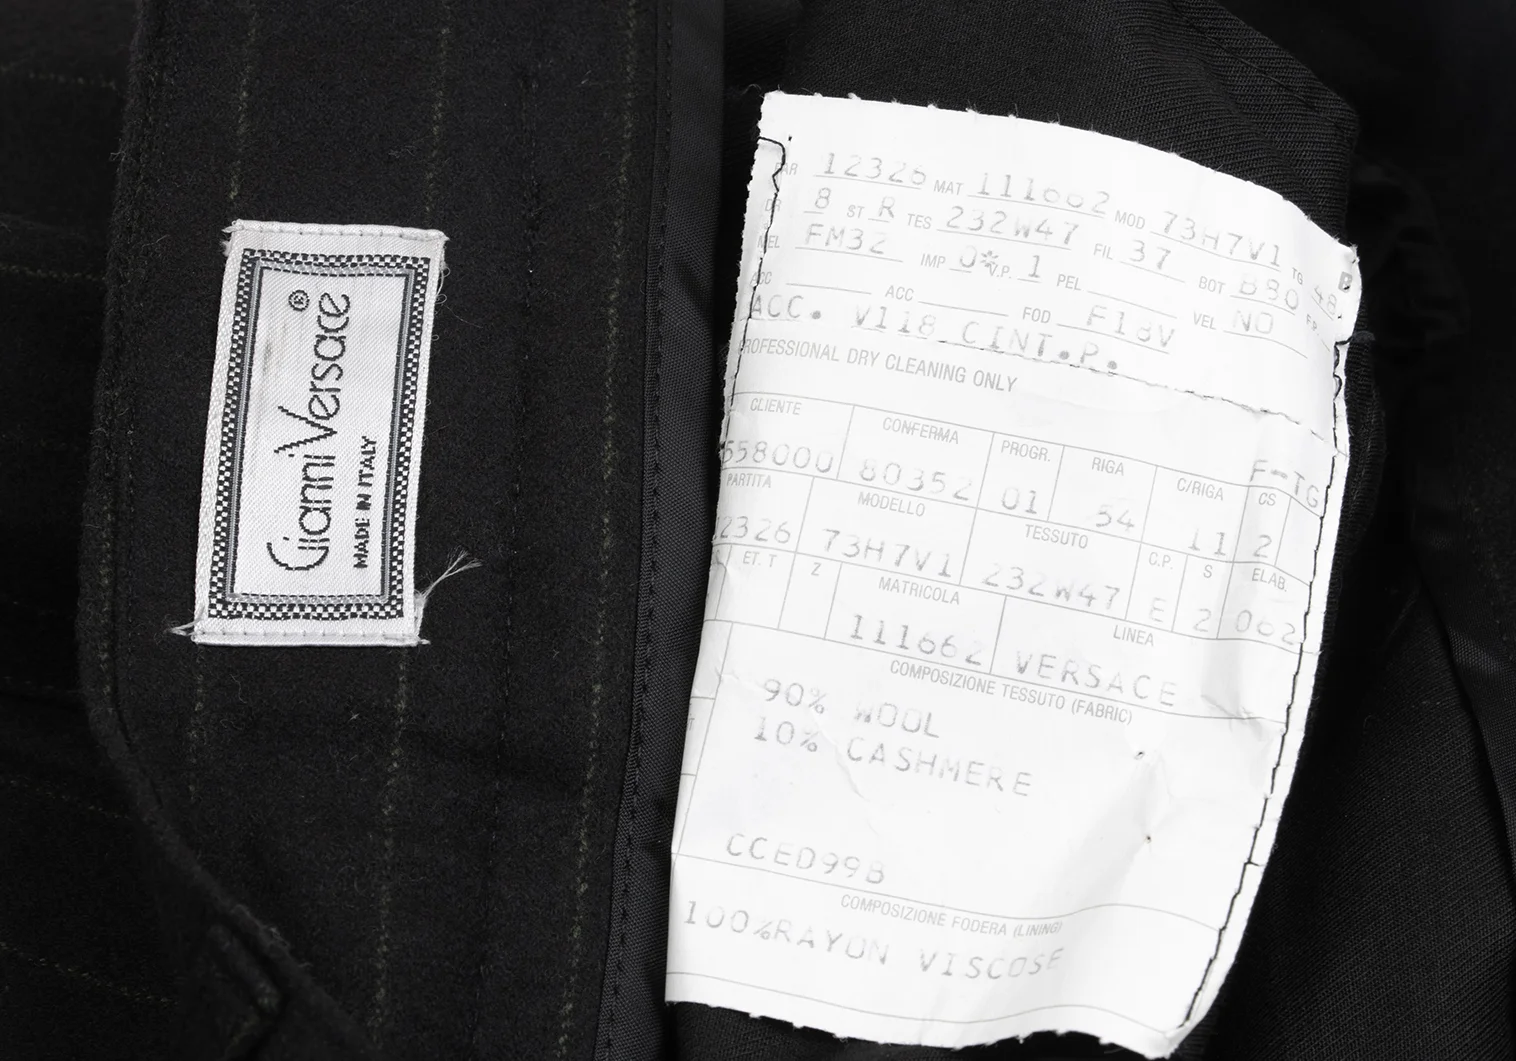 Gianni Versace®
MADE IN ITALY
PAR 12326 MAT 111662 MOD 73H7V1 TG 48
DR 8 ST R TES 232W47 FIL 37 BOT B80
MEL FM32 IMP 0* V.P. 1 PEL VEL NO
ACC ACC FOD F18V
ACC. V118 CINT.P.
PROFESSIONAL DRY CLEANING ONLY
F-TG
CLIENTE CONFERMA PROGR. RIGA C/RIGA CS
558000 80352 01 54 11 2
PARTITA MODELLO TESSUTO C.P. S ELAB.
2326 73H7V1 232W47 E 2 062
ET. T Z MATRICOLA LINEA
111662 VERSACE
COMPOSIZIONE TESSUTO (FABRIC)
90% WOOL
10% CASHMERE
CCED99B
COMPOSIZIONE FODERA (LINING)
100%RAYON VISCOSE